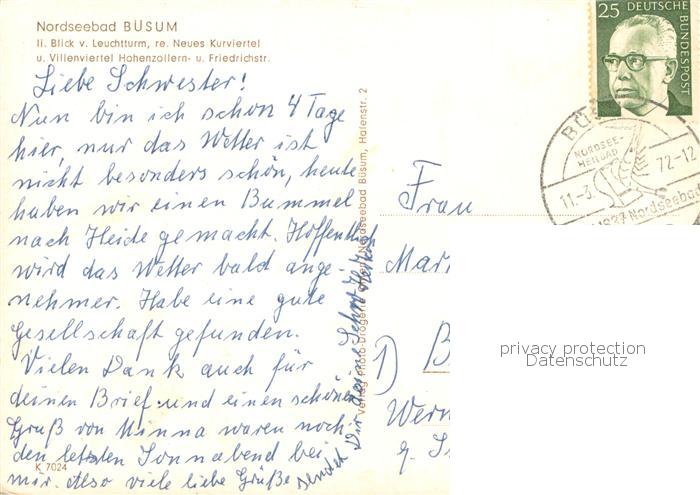 Nordseebad BÜSUM
li. Blick v. Leuchtturm, re. Neues Kurviertel
u. Villenviertel Hohenzollern- u. Friedrichstr.
Liebe Schwester!
Nun bin ich schon 4 Tage
hier, nur das Wetter ist
nicht besonders schön, heute
haben wir einen Bummel
nach Heide gemacht. Hoffentlich
wird das Wetter bald ange-
nehmer. Habe eine gute
Gesellschaft gefunden.
Vielen Dank auch für
deinen Brief und einen schönen
Gruß von Minna waren noch
den letzten Sonnabend bei
mir. Also viele liebe Grüße
sendet Dir deine Schw.
K 7024
Nordseebad Büsum, Hafenstr. 2
25 DEUTSCHE BUNDESPOST
BÜS
NORDSEE-
HEILBAD
11.-3. 72-12
1837 Nordseebad
Frau
Mar
B
Wer
privacy protection
Datenschutz